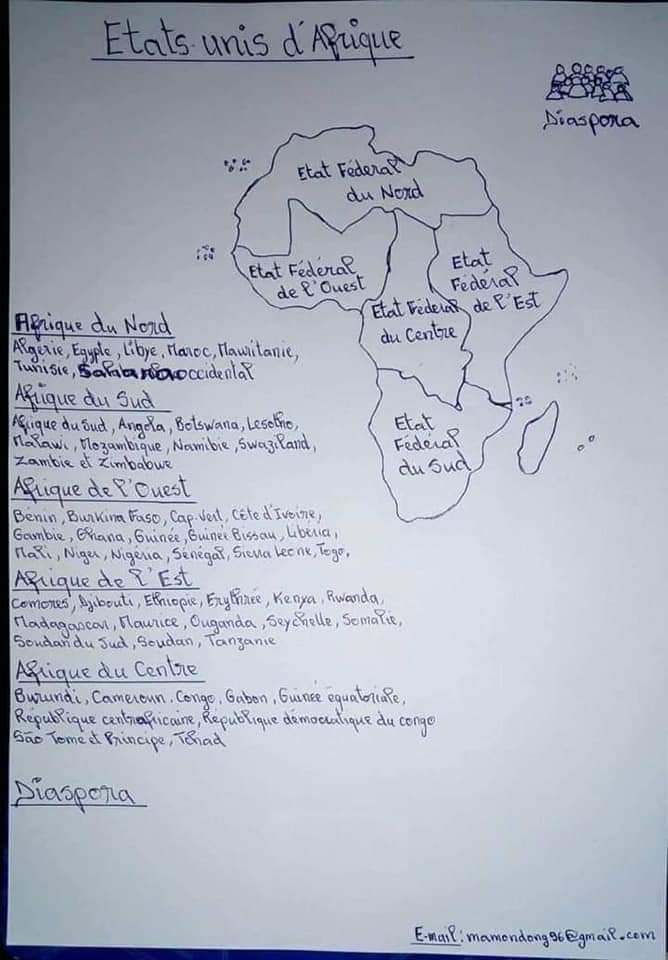 Etats-unis d'Afrique
Diaspora
Etat Féderal
du Nord
Etat Fédéral
de l'Ouest
Etat
Fédéral
de l'Est
Etat Féderal
du Centre
Etat
Fédéral
du Sud
Afrique du Nord
Algérie, Egypte, Libye, Maroc, Mauritanie,
Tunisie, Sahara occidental
Afrique du Sud
Afrique du Sud, Angola, Botswana, Lesotho,
Malawi, Mozambique, Namibie, Swaziland,
Zambie et Zimbabwe
Afrique de l'Ouest
Bénin, Burkina Faso, Cap-Vert, Côte d'Ivoire,
Gambie, Ghana, Guinée, Guinée Bissau, Libéria,
Mali, Niger, Nigéria, Sénégal, Sierra Leone, Togo,
Afrique de l'Est
Comores, Djibouti, Ethiopie, Erythrée, Kenya, Rwanda,
Madagascar, Maurice, Ouganda, Seychelle, Somalie,
Soudan du Sud, Soudan, Tanzanie
Afrique du Centre
Burundi, Cameroun, Congo, Gabon, Guinée équatoriale,
République centrafricaine, République démocratique du congo
São Tome et Principe, Tchad
Diaspora
E-mail: mamondong96@gmail.com